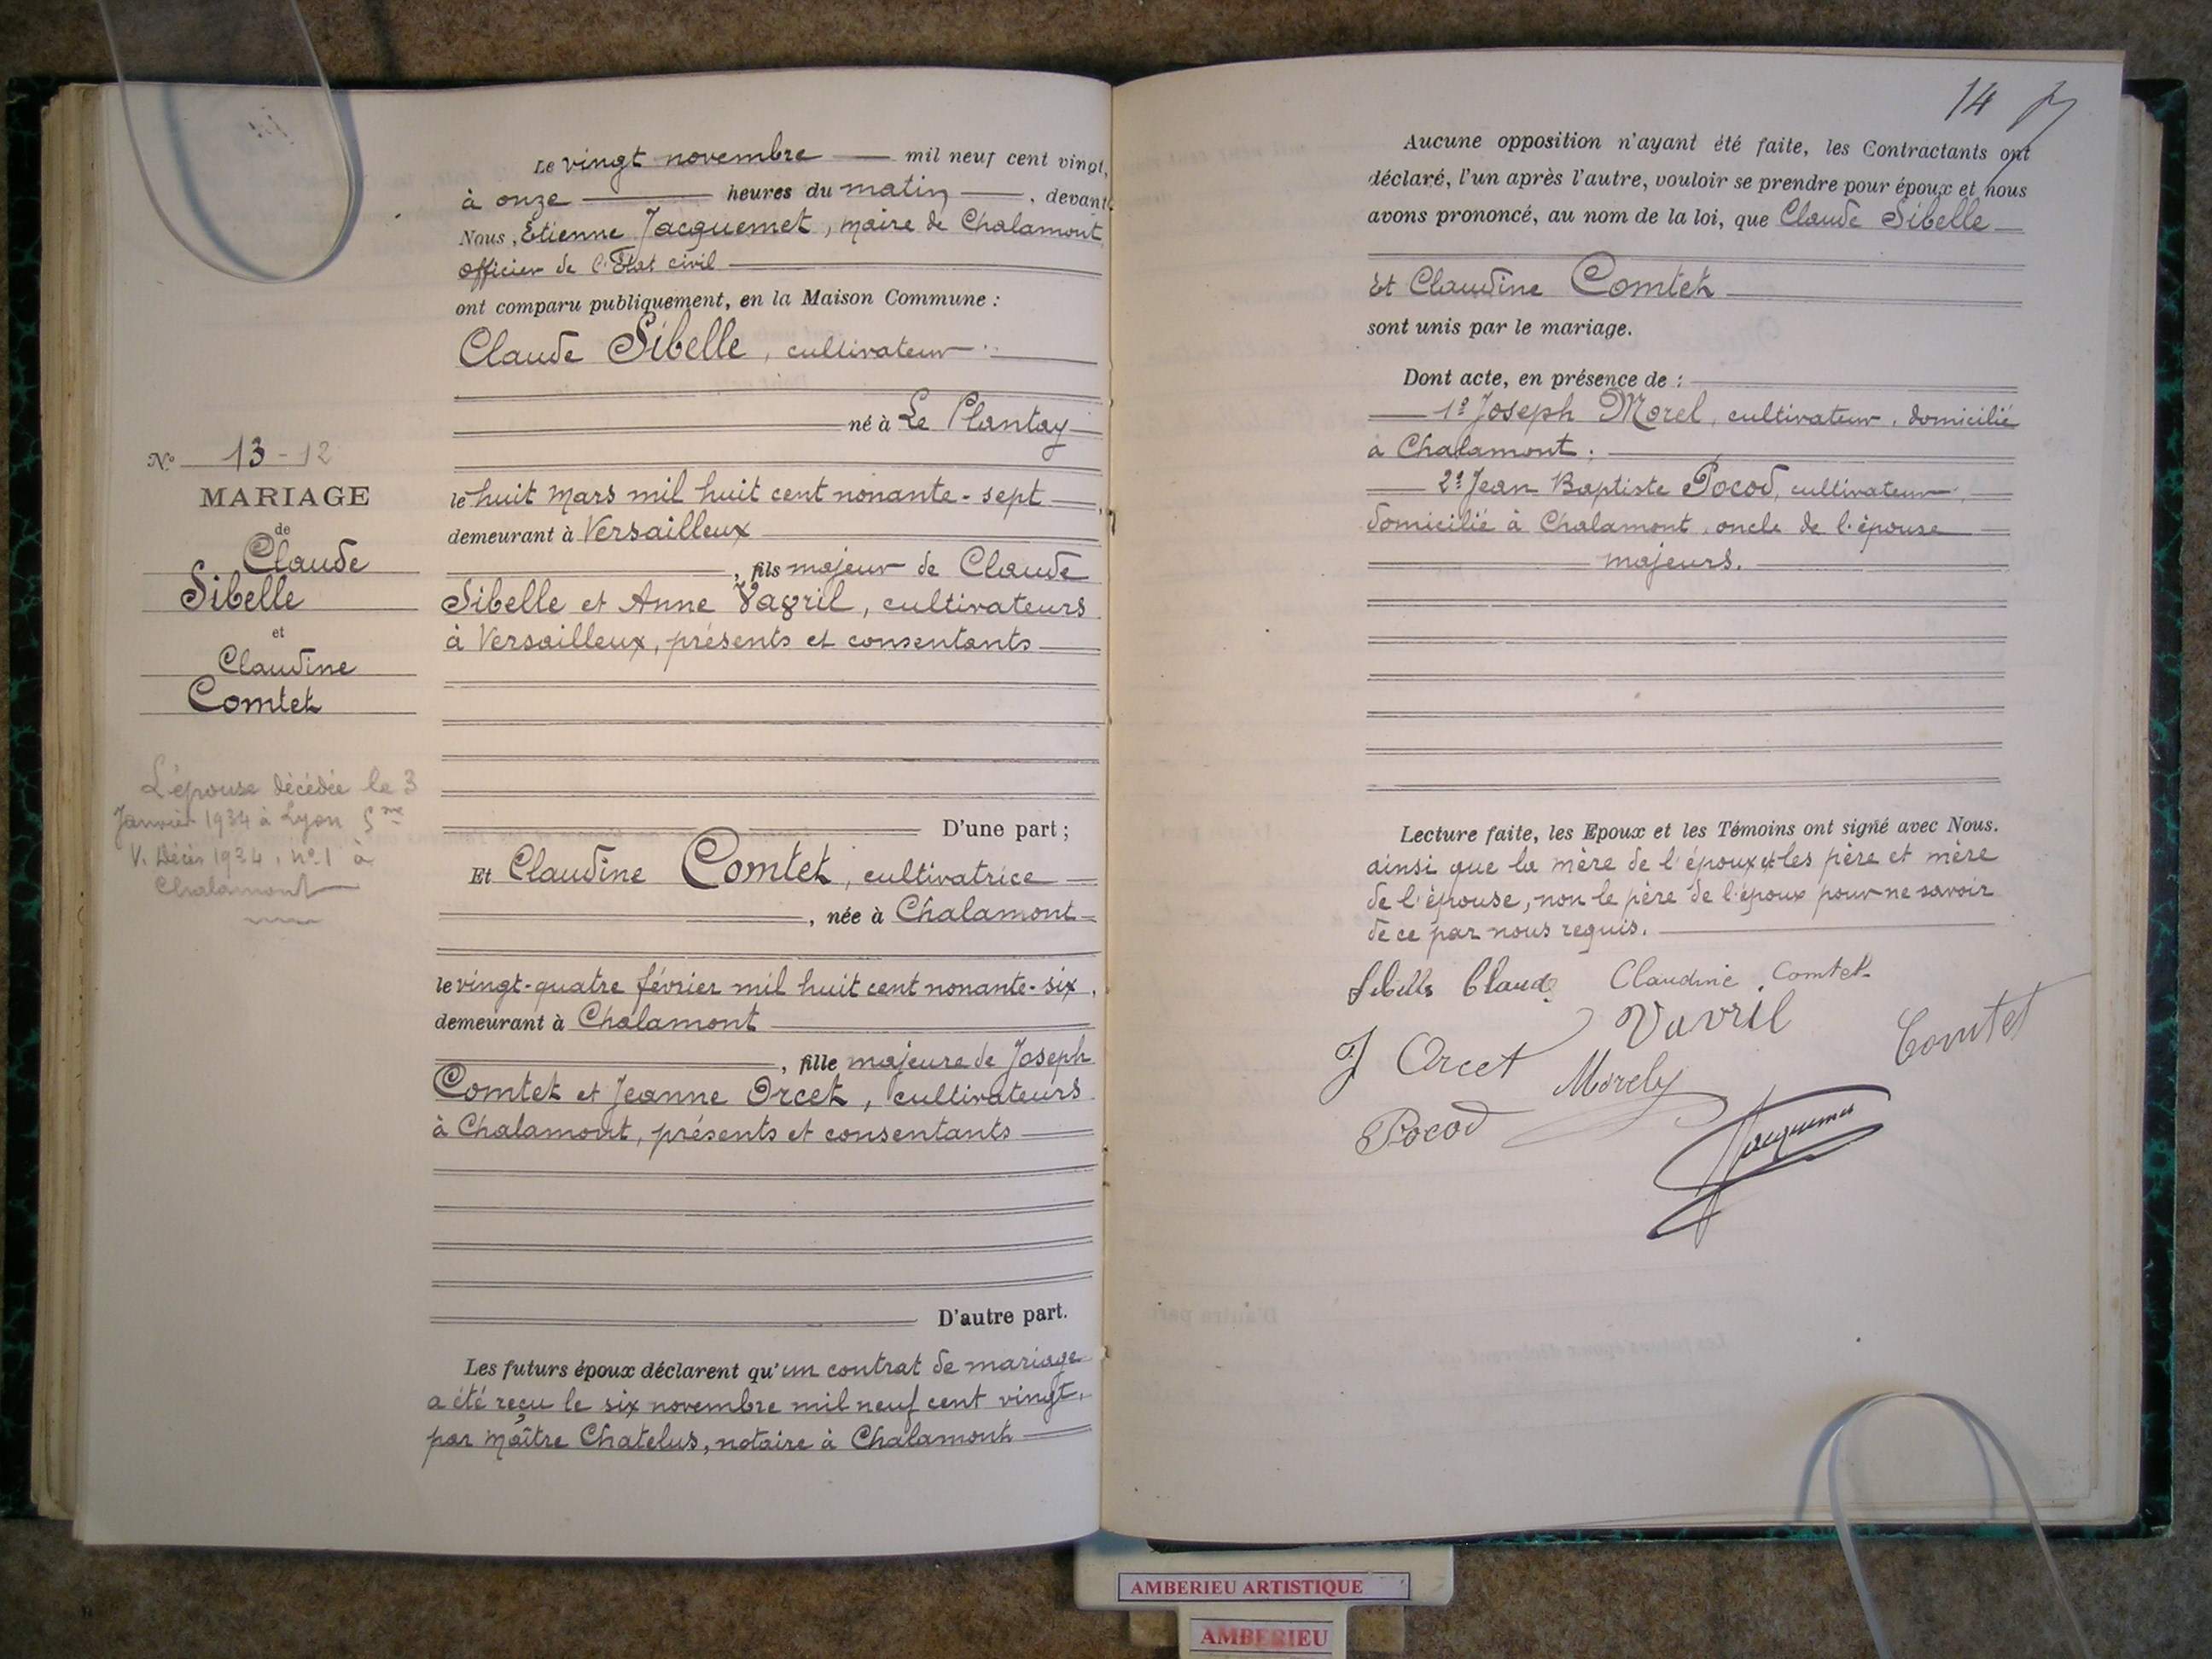 Le vingt novembre mil neuf cent vingt,
à onze heures du matin, devant
Nous, Etienne Jacquemet, maire de Chalamont,
officier de l'Etat civil
ont comparu publiquement, en la Maison Commune :
Claude Sibelle, cultivateur
né à Le Plantay
le huit mars mil huit cent nonante-sept,
demeurant à Versailleux
, fils majeur de Claude
Sibelle et Anne Vavril, cultivateurs
à Versailleux, présents et consentants
D'une part ;
Et Claudine Comtet, cultivatrice
, née à Chalamont
le vingt-quatre février mil huit cent nonante-six,
demeurant à Chalamont
, fille majeure de Joseph
Comtet et Jeanne Orcet, cultivateurs
à Chalamont, présents et consentants
D'autre part.
Les futurs époux déclarent qu'un contrat de mariage
a été reçu le six novembre mil neuf cent vingt,
par Maître Chatelus, notaire à Chalamont
N° 13-12
MARIAGE
de
Claude
Sibelle
et
Claudine
Comtet
L'épouse décédée le 3
Janvier 1934 à Lyon 5me
V. Décès 1934, n° 1 à
Chalamont
14
Aucune opposition n'ayant été faite, les Contractants ont
déclaré, l'un après l'autre, vouloir se prendre pour époux et nous
avons prononcé, au nom de la loi, que Claude Sibelle
Et Claudine Comtet
sont unis par le mariage.
Dont acte, en présence de :
1° Joseph Morel, cultivateur, domicilié
à Chalamont ;
2° Jean Baptiste Pocod, cultivateur,
domicilié à Chalamont, oncle de l'épouse
majeurs.
Lecture faite, les Epoux et les Témoins ont signé avec Nous.
ainsi que la mère de l'époux et les père et mère
de l'épouse, non le père de l'époux pour ne savoir
de ce par nous requis.
Sibelle Claude Claudine Comtet
J Orcet Vavril Comtet
Pocod Morel Jacquemet
AMBERIEU ARTISTIQUE
AMBERIEU